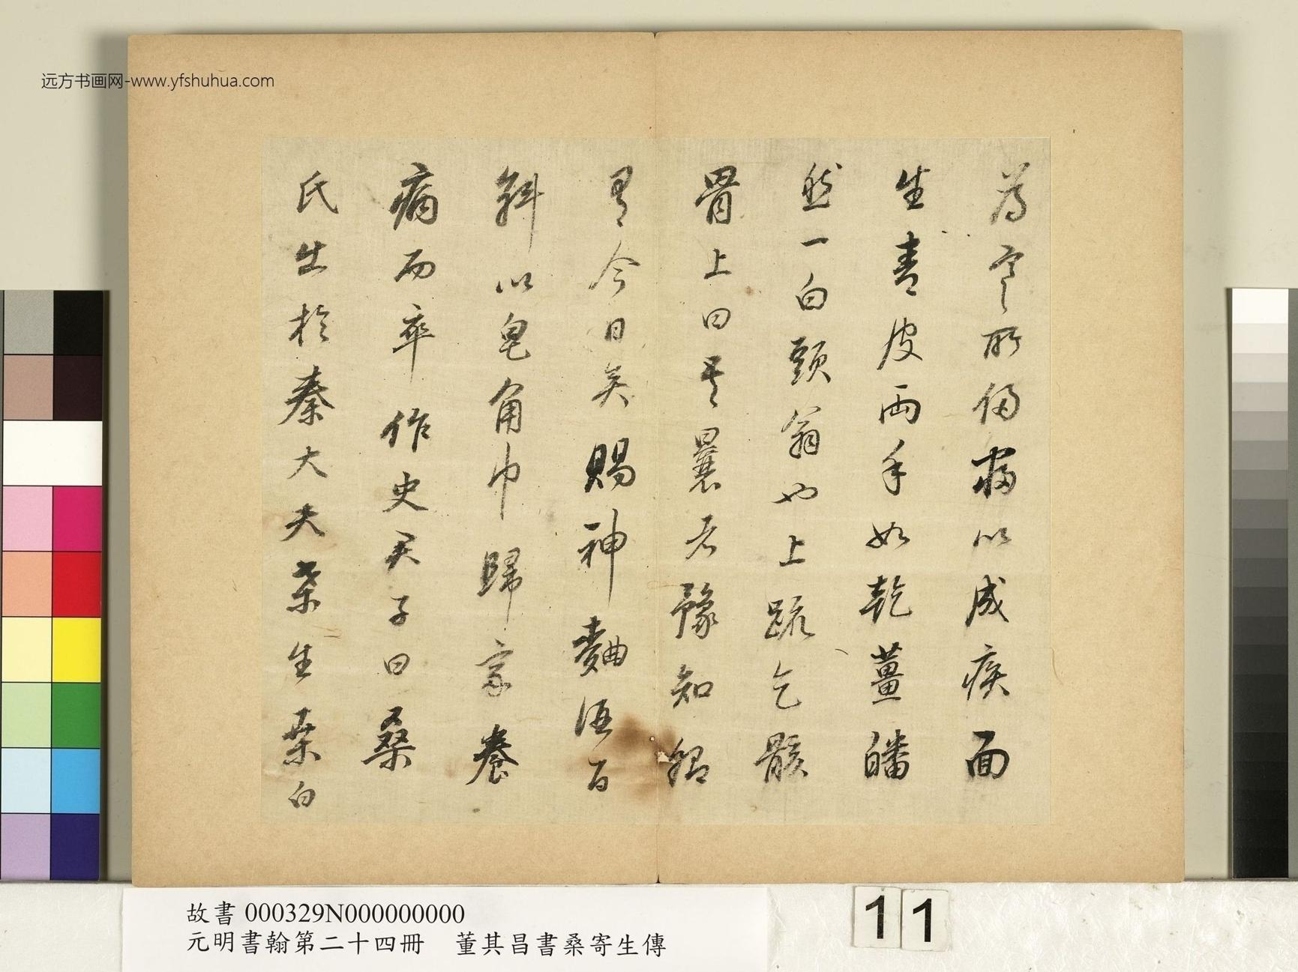 远方书画网-www.yfshuhua.com
為寒所侵㾮以成疾面
生青皮兩手如乾薑皤
然一白頭翁也上疏乞骸
骨上曰吾曩者豫知卿
有今日矣賜神麴酒百
斛以皂角巾歸家養
病而卒作史君子曰桑
氏出於秦大夫桑生桑白
故書 000329N000000000
元明書翰第二十四冊　董其昌書桑寄生傳
11